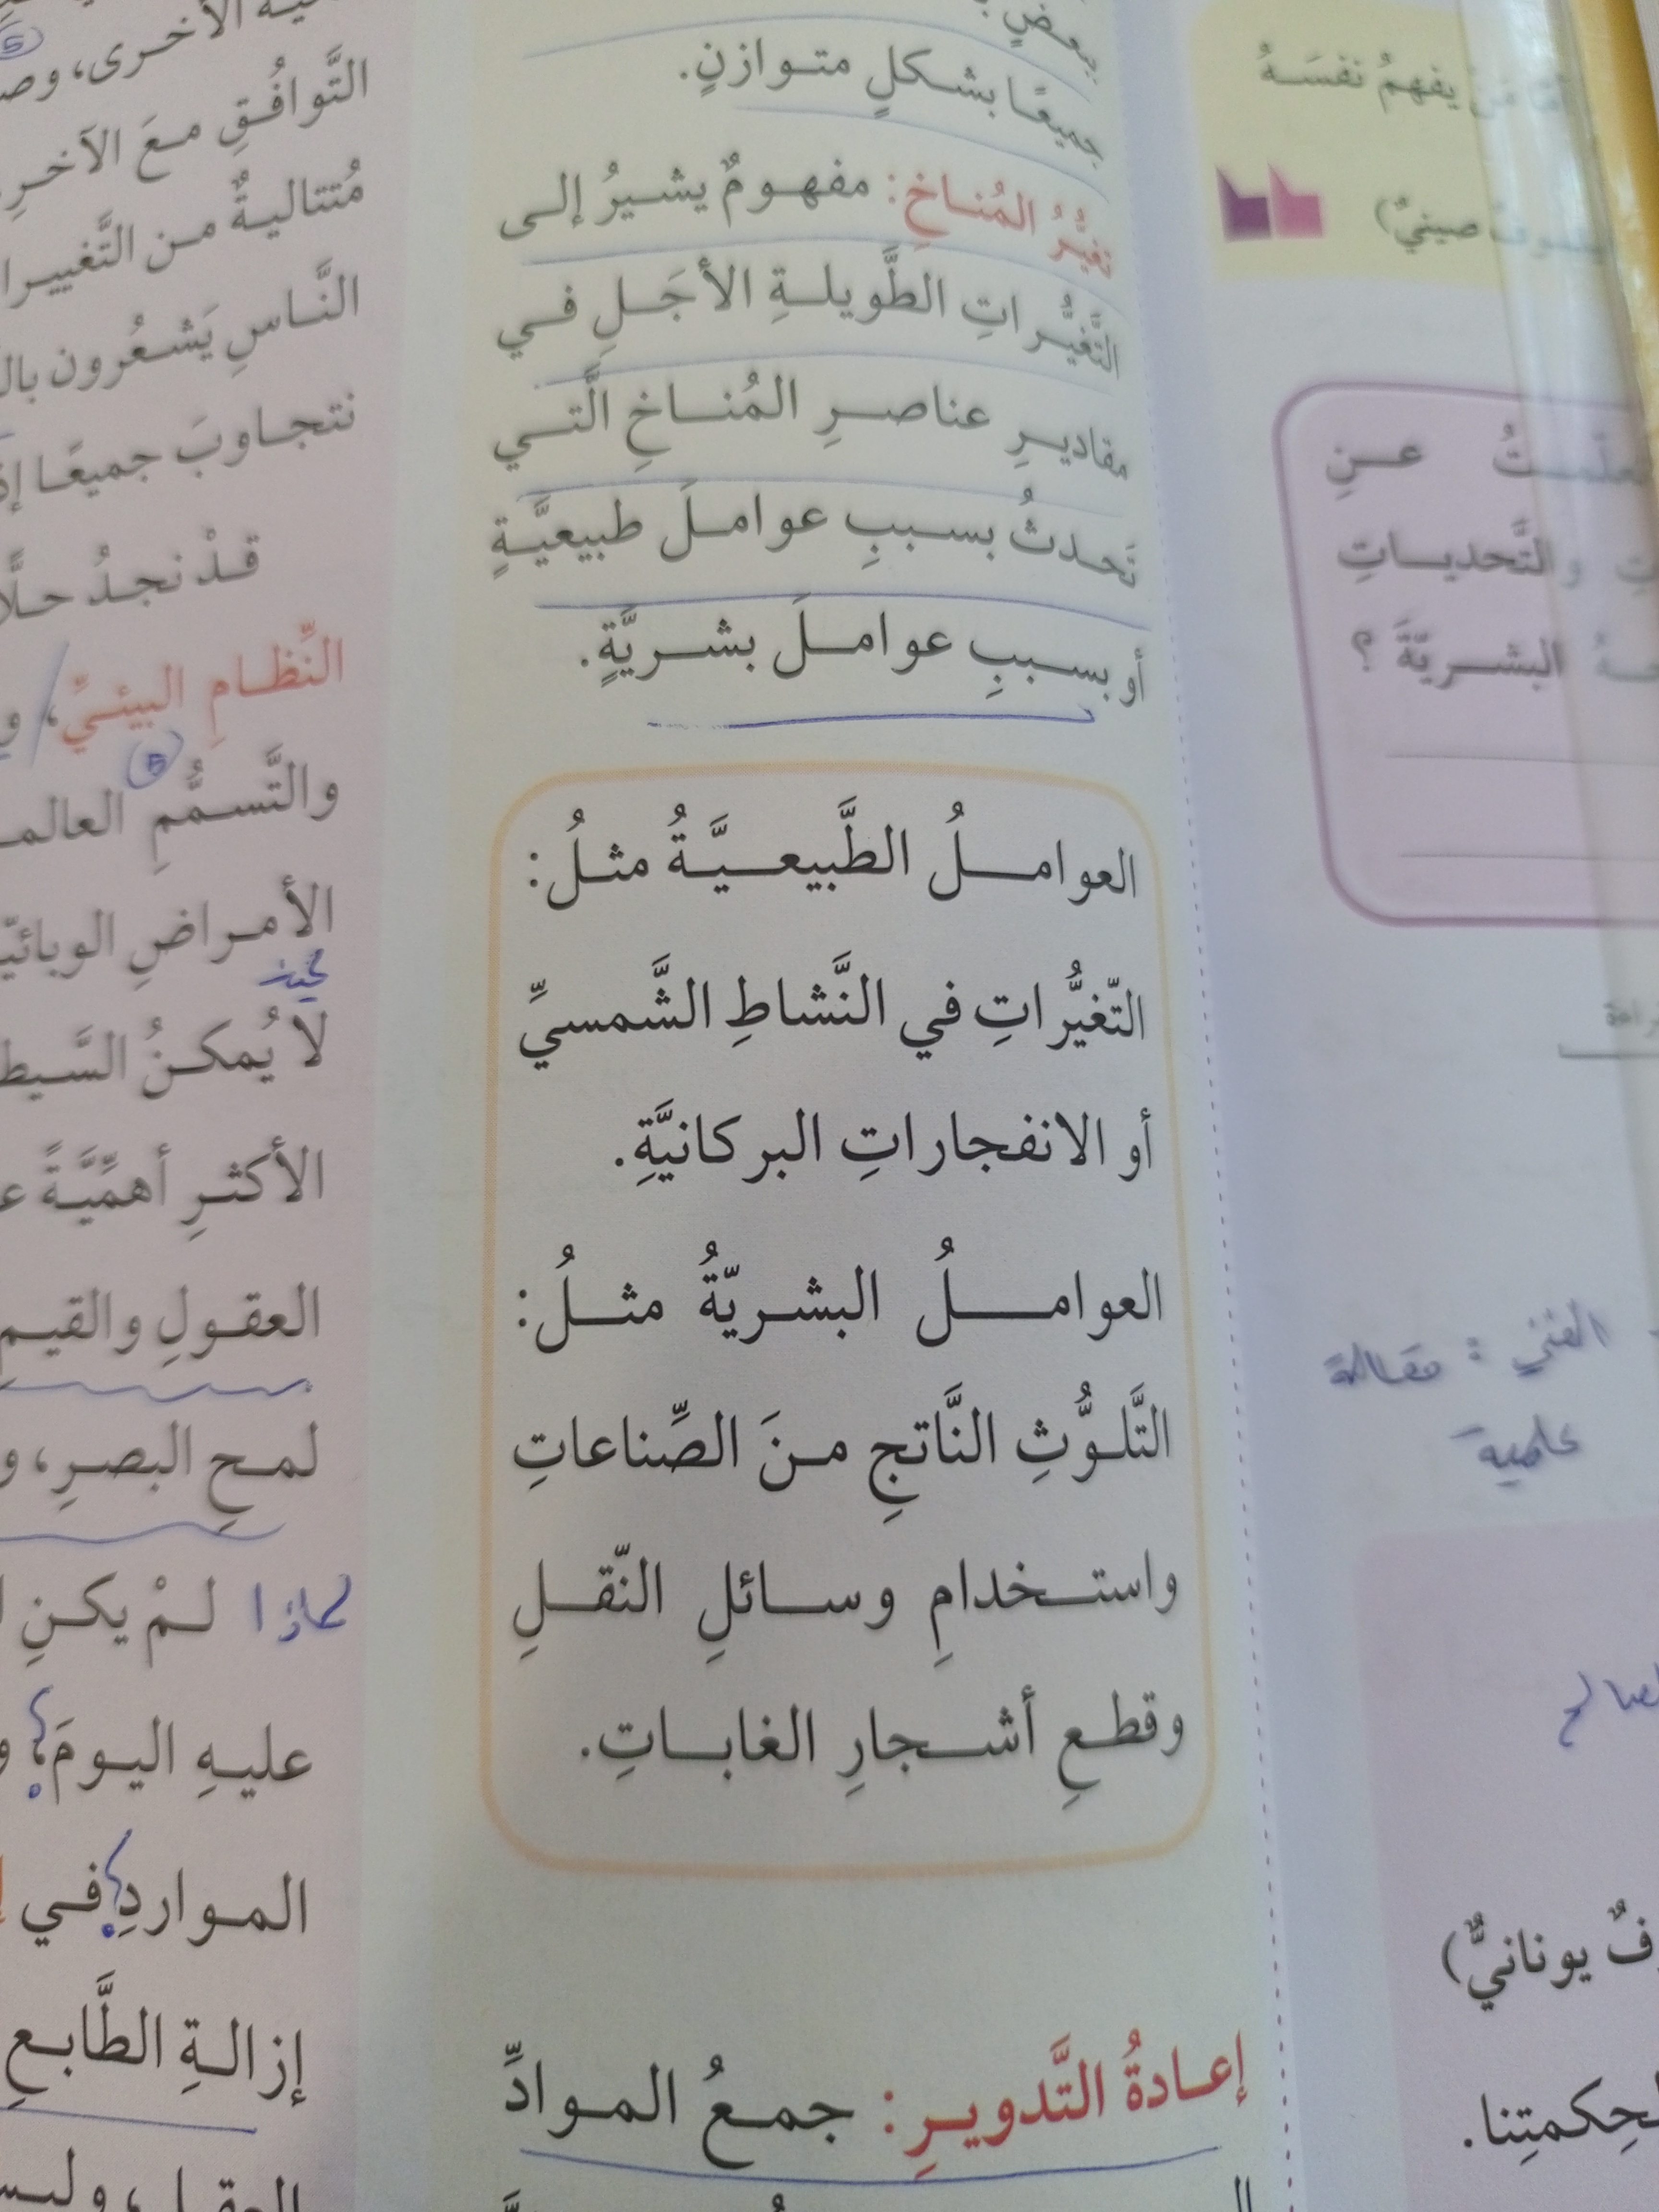 يفهمُ نفسَهُ
صينيٌّ)
عنِ
والتَّحدياتِ
البشريّةَ ؟
الفني : مقالة
علمية
يونانيٌّ)
لحِكمتِنا.
جميعًا بشكلٍ متوازنٍ.
تغيُّرُ المُناخِ: مفهومٌ يشيرُ إلى
التَّغيُّراتِ الطَّويلةِ الأجَلِ في
مقاديرِ عناصرِ المُناخِ الَّتي
تَحدثُ بسببِ عواملَ طبيعيَّةٍ
أو بسببِ عواملَ بشريَّةٍ.
العواملُ الطَّبيعيَّةُ مثلُ:
التّغيُّراتِ في النَّشاطِ الشَّمسيِّ
أو الانفجاراتِ البركانيَّةِ.
العواملُ البشريّةُ مثلُ:
التَّلوُّثِ النَّاتجِ منَ الصِّناعاتِ
واستخدامِ وسائلِ النّقلِ
وقطعِ أشجارِ الغاباتِ.
إعادةُ التَّدويرِ: جمعُ الموادِّ
الأخرى، وص
التَّوافُقِ معَ الآخرِ
مُتتاليةٌ من التَّغييرا
النَّاسِ يَشعُرون بال
نتجاوبَ جميعًا إ
قدْ نجدُ حلًّا
النِّظامِ البيئيِّ، و
والتَّسمُّمِ العالم
الأمراضِ الوبائيّ
لا يُمكنُ السَّيط
الأكثرِ أهمِّيَّةً ع
العقولِ والقيم
لمحِ البصرِ، و
لماذا لمْ يكنِ ا
عليهِ اليومَ، و
المواردِ في
إزالةِ الطَّابعِ